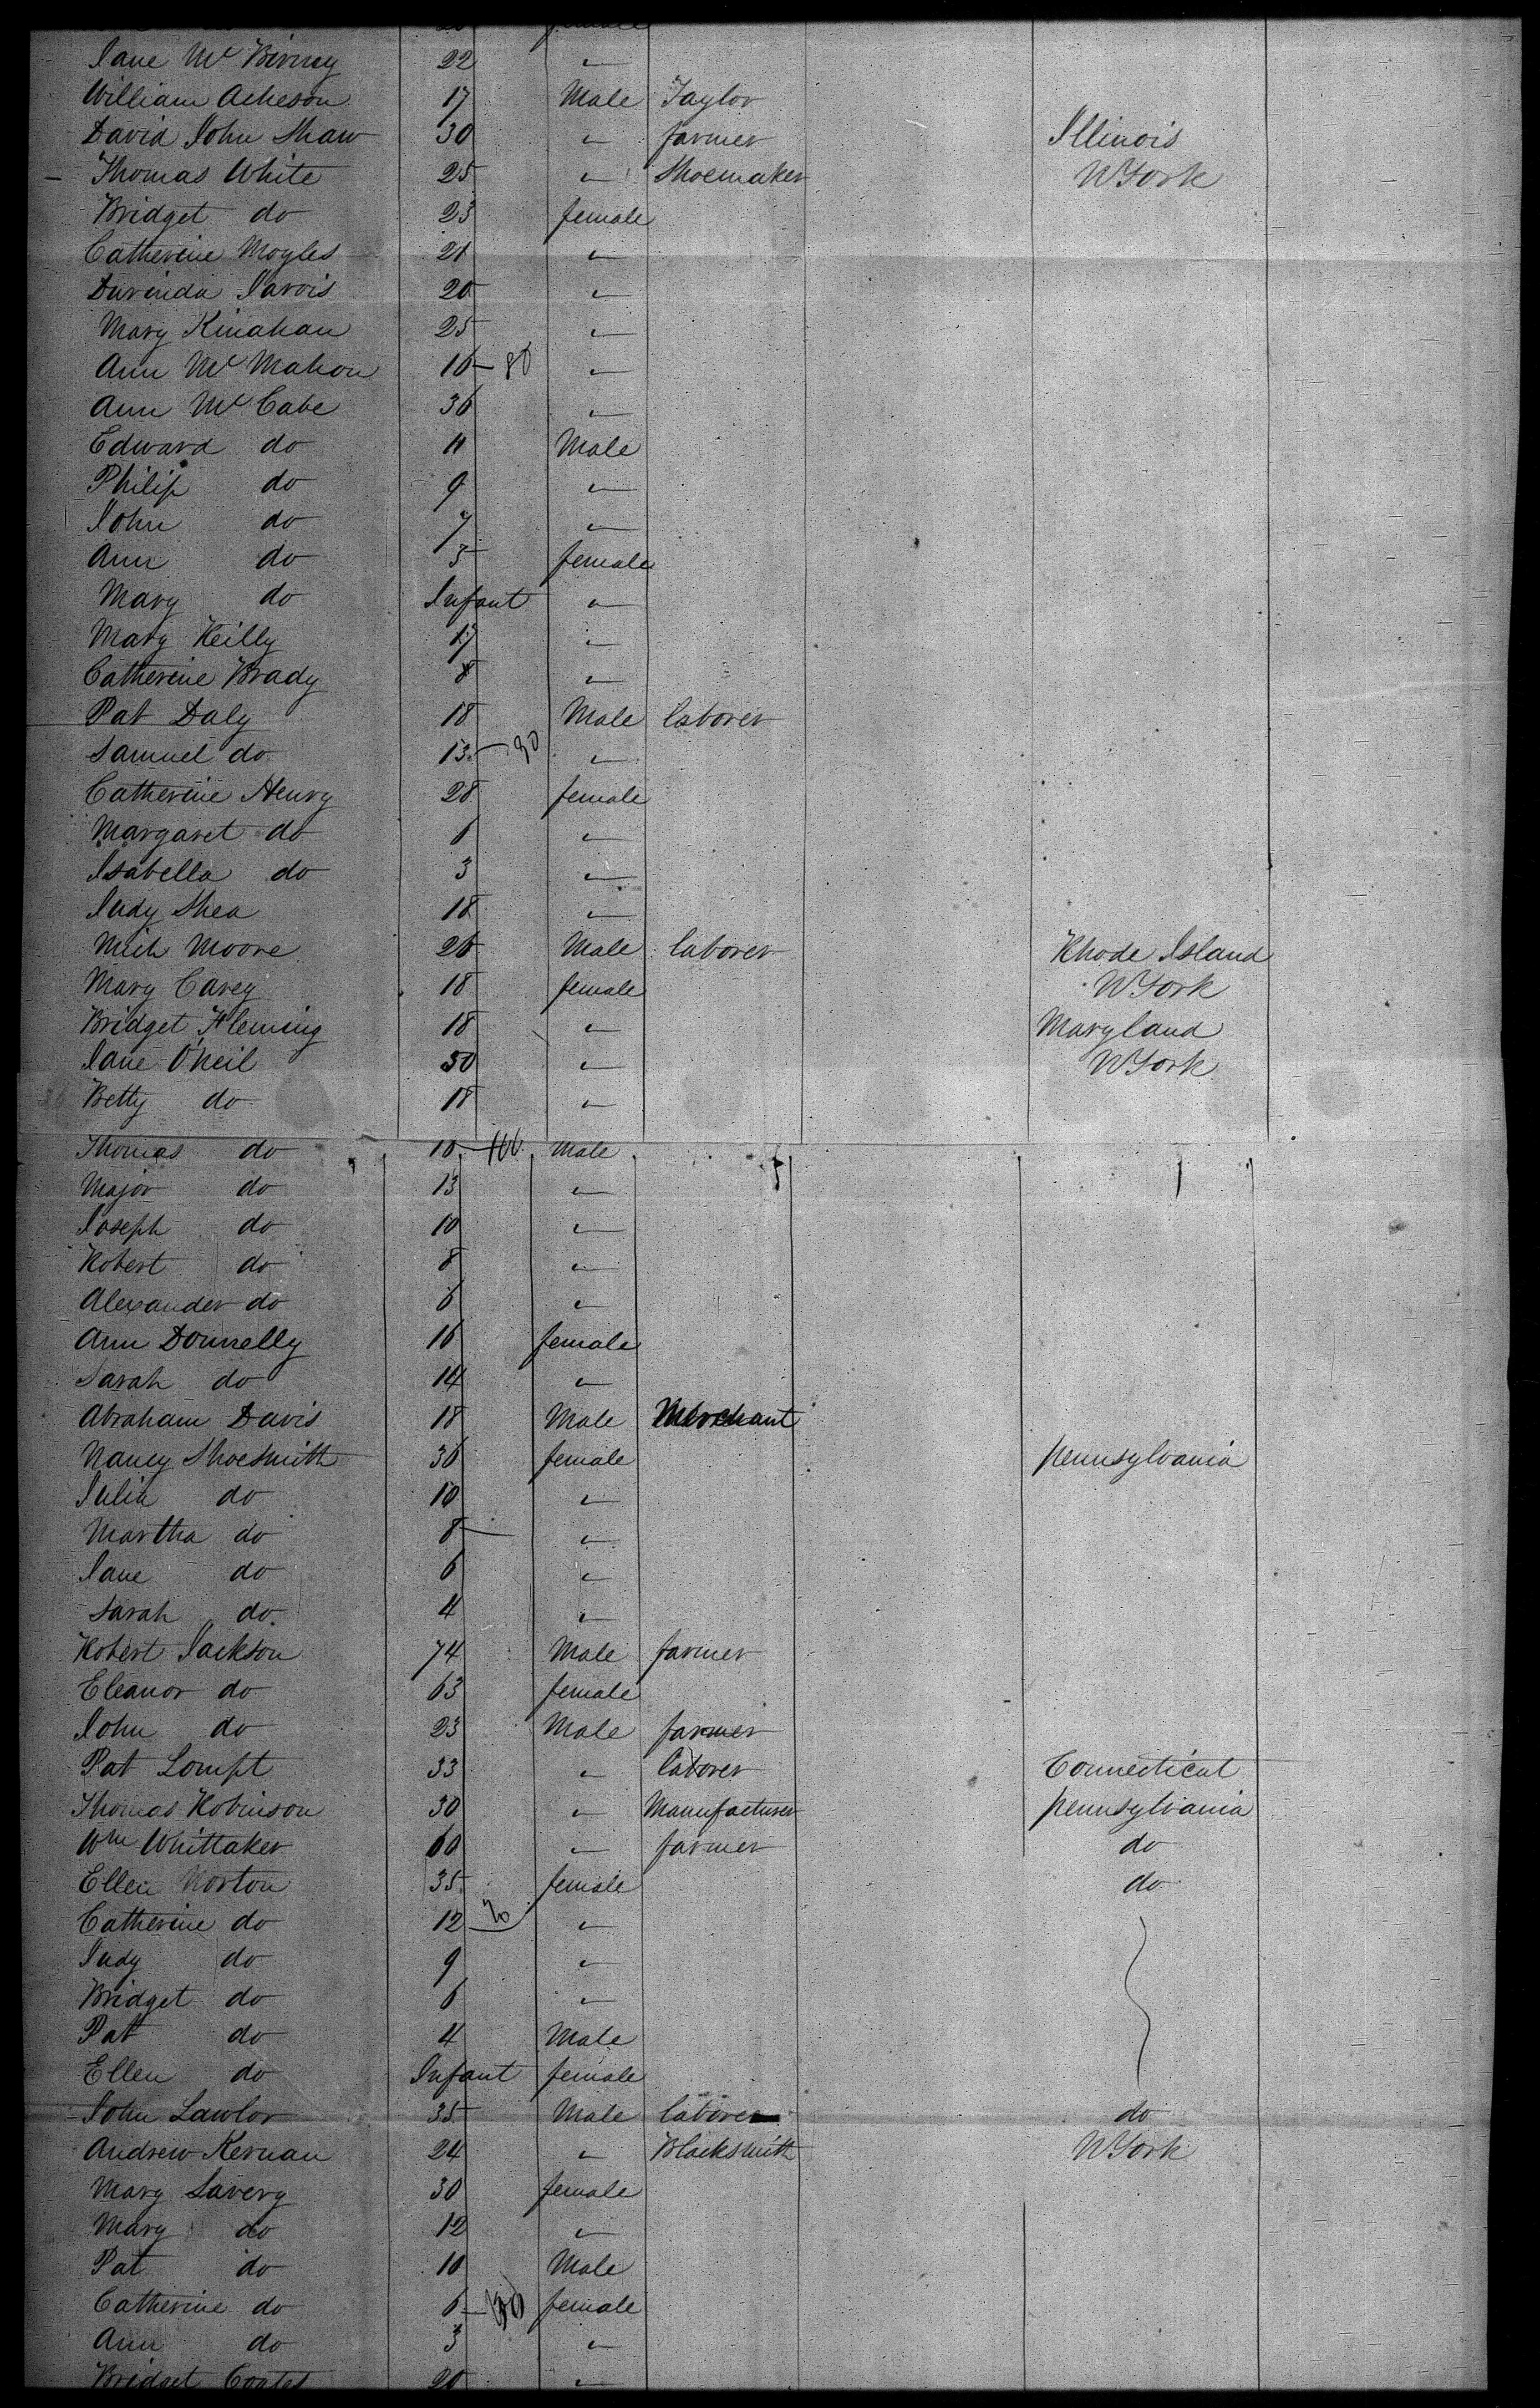 20 female
Jane Mc Birney 22 "
William Acheson 17 Male Taylor
David John Shaw 30 " farmer Illinois
Thomas White 25 " Shoemaker NYork
Bridget do 23 female
Catherine Moyles 21 "
Durinda Jarvis 20 "
Mary Kinahan 25 "
Ann Mc Mahon 16 - 80 "
Ann Mc Cabe 36 "
Edward do 11 Male
Philip do 9 "
John do 7 "
Ann do 5 female
Mary do Infant "
Mary Reilly 17 "
Catherine Brady 8 "
Pat Daly 18 Male laborer
Samuel do 13 - 90 "
Catherine Henry 28 female
Margaret do 6 "
Isabella do 3 "
Judy Shea 18 "
Mich Moore 26 Male laborer Rhode Island
Mary Carey 18 female NYork
Bridget Fleming 18 " Maryland
Jane O'Neil 50 " NYork
Betty do 18 "
Thomas do 16 - 100 Male
Major do 13 "
Joseph do 10 "
Robert do 8 "
Alexander do 6 "
Ann Donnelly 16 female
Sarah do 14 "
Abraham Davis 18 Male Merchant
Nancy Shoesmith 36 female pennsylvania
Julia do 10 "
Martha do 8 - "
Jane do 6 "
Sarah do 4 "
Robert Jackson 74 Male farmer
Eleanor do 63 female
John do 23 Male farmer
Pat Lompt 33 " laborer Connecticut
Thomas Robinson 30 " Manufacturer pennsylvania
Wm Whittaker 60 " farmer do
Ellen Norton 35 female do
Catherine do 12 "
Judy do 9 "
Bridget do 6 "
Pat do 4 Male
Ellen do Infant female
John Lawlor 35 Male laborer do
Andrew Kernan 24 " Blacksmith NYork
Mary Lavery 30 female
Mary do 12 "
Pat do 10 Male
Catherine do 6 - female
Ann do 3 "
Bridget Coates 20 "